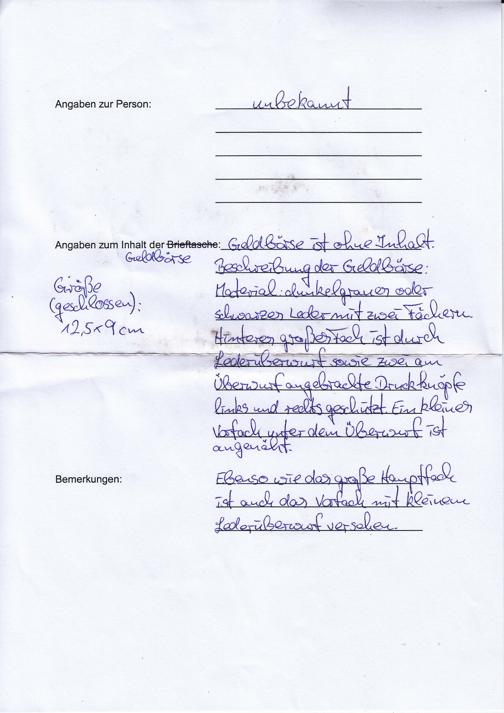 Angaben zur Person: unbekannt
Angaben zum Inhalt der Brieftasche: Geldbörse ist ohne Inhalt.
Geldbörse
Beschreibung der Geldbörse:
Größe
(geschlossen):
12,5x9 cm
Material: dunkelgraues oder
schwarzes Leder mit zwei Fächern.
Hinteres großes Fach ist durch
Lederüberwurf sowie zwei am
Überwurf angebrachte Druckknöpfe
links und rechts geschützt. Ein kleines
Vorfach unter dem Überwurf ist
angenäht.
Bemerkungen: Ebenso wie das große Hauptfach
ist auch das Vorfach mit kleinem
Lederüberwurf versehen.